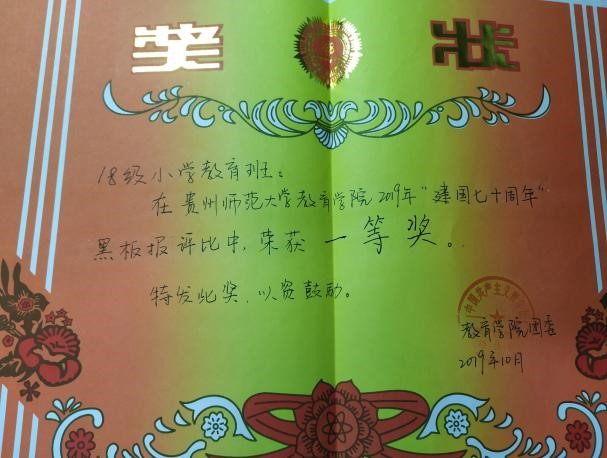 奖 状
18级小学教育班：
在贵州师范大学教育学院2019年"建国七十周年"
黑板报评比中，荣获一等奖。
特发此奖，以资鼓励。
中国共产主义
教育学院团委
2019年10月